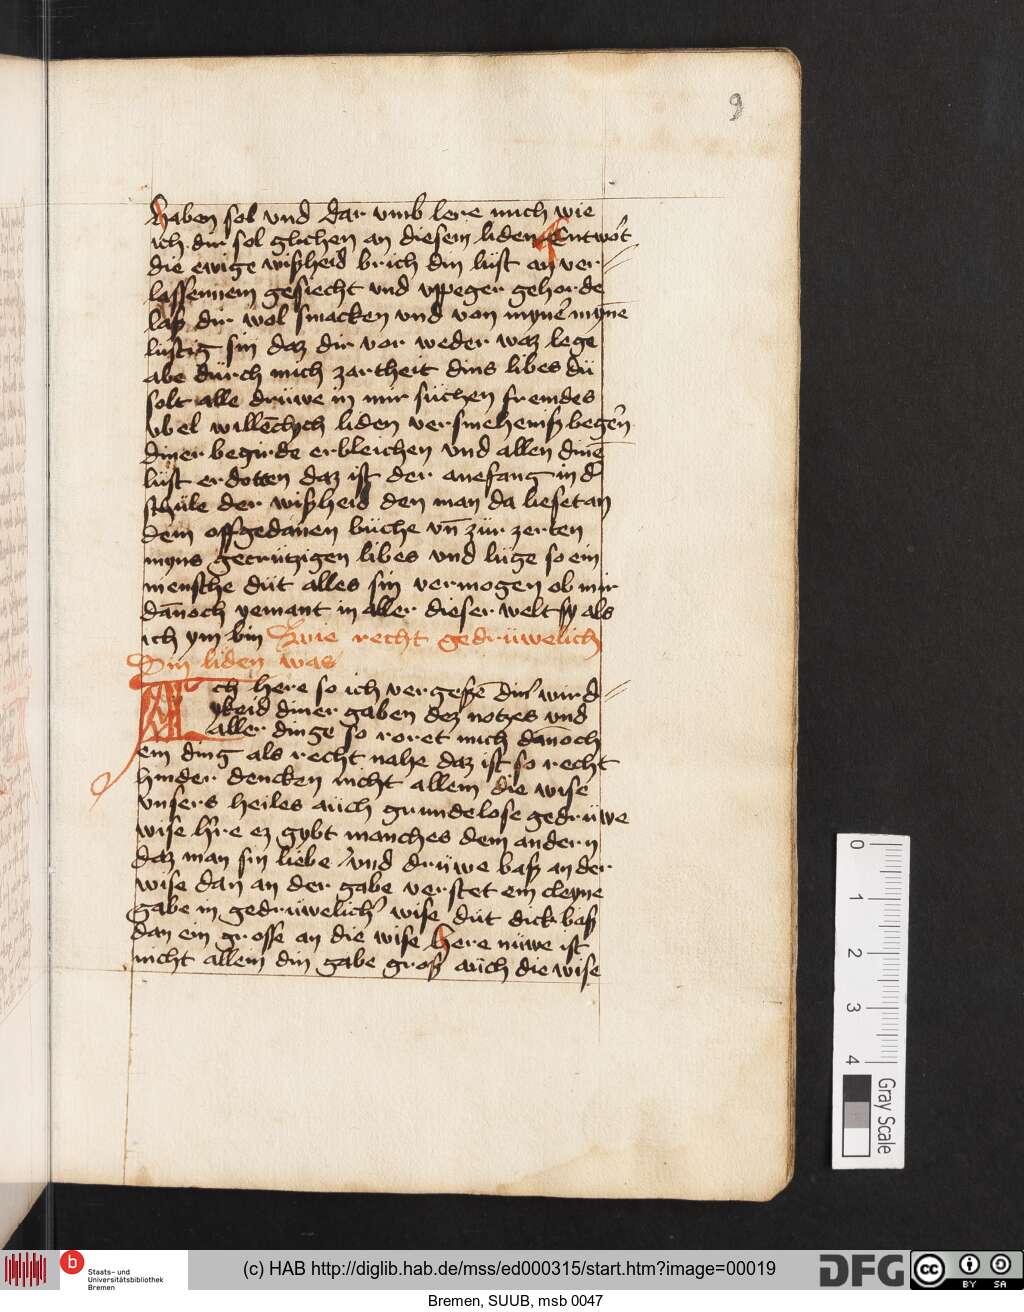 9
haben sol vnd dar vmb lere mich wie
ich dir sol glichen an diesem liden Entwo͛t
die ewige wißheid brich din lüst an ver
lassennem gesiecht vnd vppeger gehorde
laß dir wol smacken vnd von myne͛ mỹne
lüstig sin daz dir vor weder waz lege
abe dürch mich zartheit dins libes dü
solt alle drüwe in mir süchen fremdes
vbel willeclych liden versmeheniß bege͛n
diner begirde erbleichen vnd allen dinē
lüst erdotten daz ist der anefang in d͛
schüle der wißheid den man da lieset an
dem offgedanen büche vn̄ zür zerten
myns gecrützigen libes vnd lüge so ein
mensche düt alles sin vermogen ob mir
dān̄och yemant in aller dieser welt sy als
ich ym bin Wie recht gedrüwelich
Din liden was
Ach here so ich vergeßē din͛ wird
ykeid diner gaben dez notzes vnd
aller dinge so roret mich dānoch
ein ding als recht nahe daz ist so recht
hinder dencken nicht allein die wise
vnsers heiles aüch grundelose gedrüwe
wise h͛re ez gybt manches dem andern
daz man sin liebe vnd drüwe baß an der
wise dan an der gabe verstet ein cleyne
gabe in gedrüwelich͛ wise düt dick baß
dan ein grosse an die wise here nüwe ist
nicht allein din gabe groß aüch die wise
0
1
2
3
4
Gray Scale
b
Staats- und
Universitätsbibliothek
Bremen
(c) HAB http://diglib.hab.de/mss/ed000315/start.htm?image=00019
DFG
cc BY SA
Bremen, SUUB, msb 0047